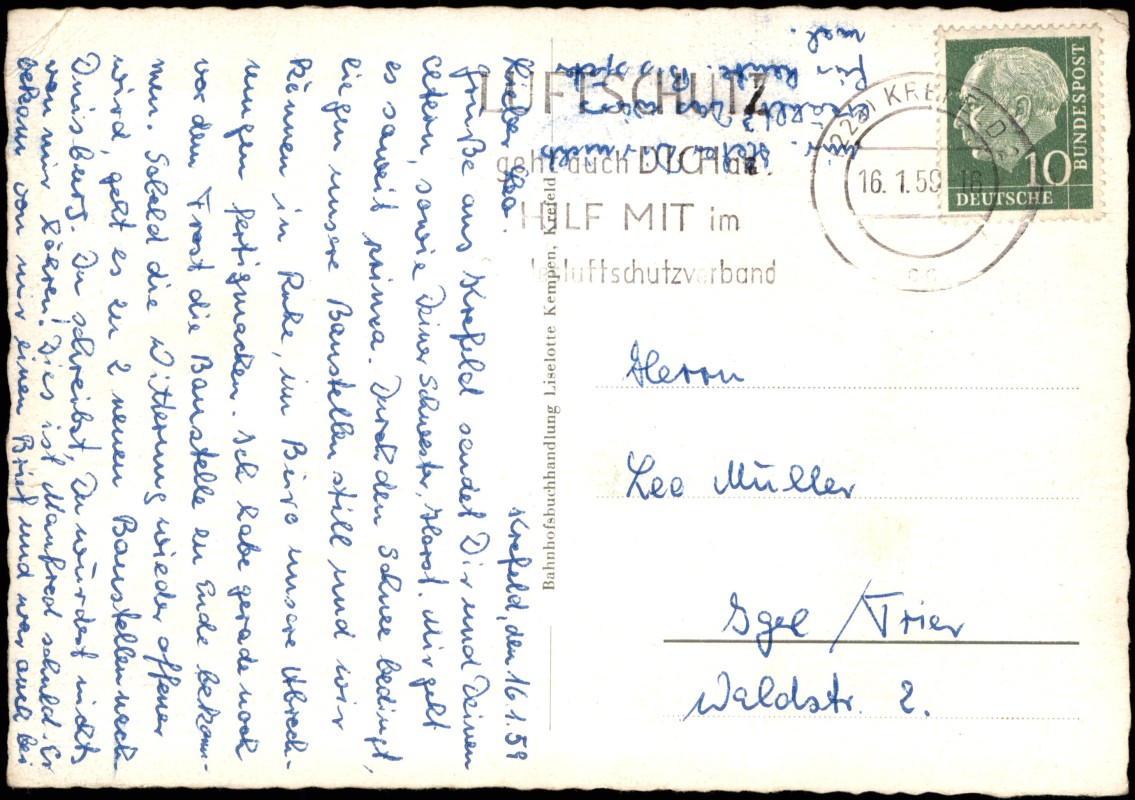 Krefeld, den 16.1.59
Lieber Leo.
Grüße aus Krefeld sendet Dir und Deinen
Eltern, sowie Deiner Schwester, Horst. Mir geht
es soweit prima. Durch den Schnee bedingt,
liegen unsere Baustellen still und wir
können in Ruhe, im Büro unsere Abrech-
nungen fertigmachen. Ich habe gerade noch
vor dem Frost die Baustelle zu Ende bekom-
men. Sobald die Witterung wieder offener
wird, geht es zu 2 neuen Baustellen nach
Duisburg. Du schreibst, Du würdest nichts
von mir hören! Dies ist Manfred schuld. Er
bekam von mir einen Brief und war auch bei
mir. Hat er Dir nichts
erzählt? Das wär's
für heute. Bis später
mal.
LUFTSCHUTZ
geht auch DICH an.
HILF MIT im
desluftschutzverband
(22a) KREFELD 2
16. 1. 59 - 16
cc
DEUTSCHE
BUNDESPOST
10
Bahnhofsbuchhandlung Liselotte Kempen, Krefeld
Herrn
Leo Müller
Igel / Trier
Waldstr. 2.